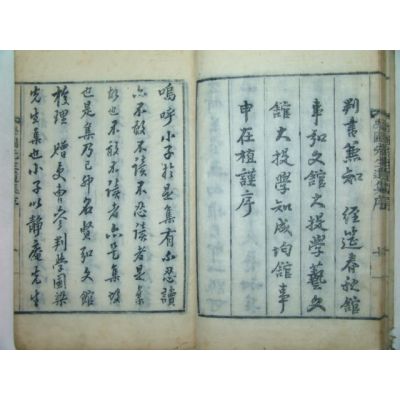 學圃先生遺集序
判書兼知 經筵春秋館
事弘文館大提學藝文
館大提學知成均館事
申在植謹序
嗚呼小子於是集有不忍讀
亦不敢不讀不忍讀者是集
故也不敢不讀者亦是集故
也是集乃己卯名賢弘文館
校理 贈吏曹參判學圃梁
先生集也小子以靜庵先生